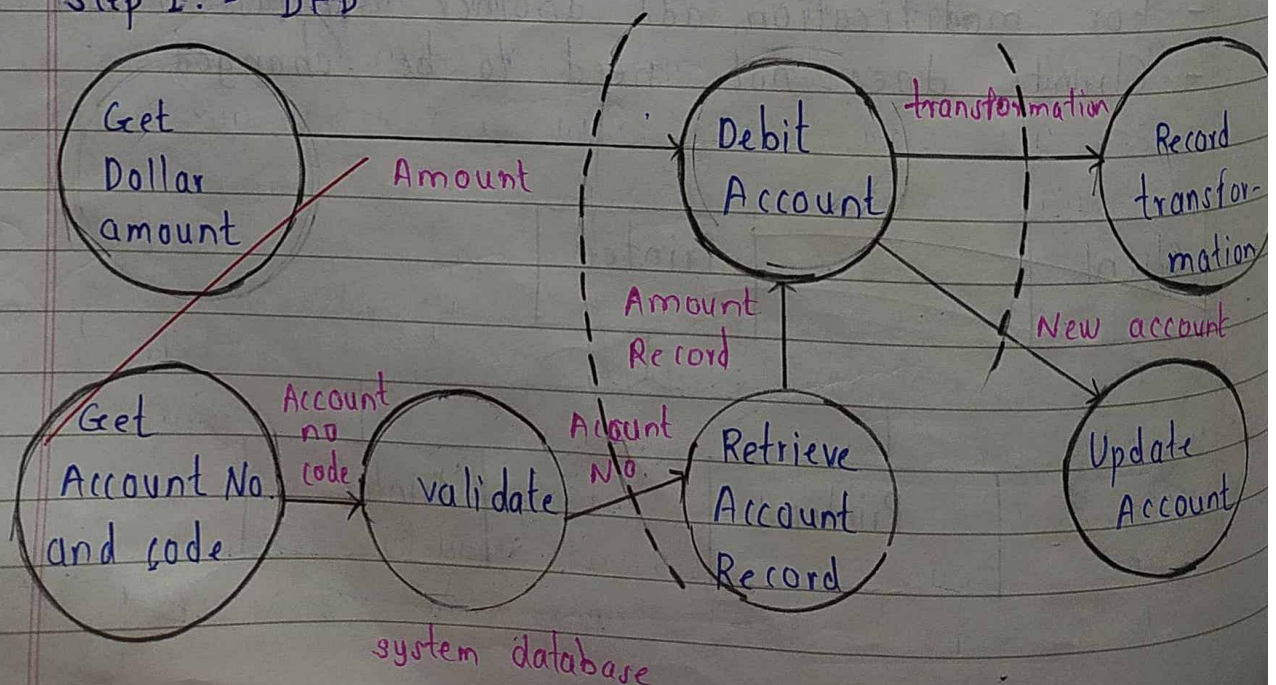 Step 1: - DFD
Get
Dollar
amount
Amount
Debit
Account
transformation
Record
transfor-
mation
Amount
Record
New account
Get
Account No.
and code
Account
no
code
validate
Acount
No.
Retrieve
Account
Record
Update
Account
system database